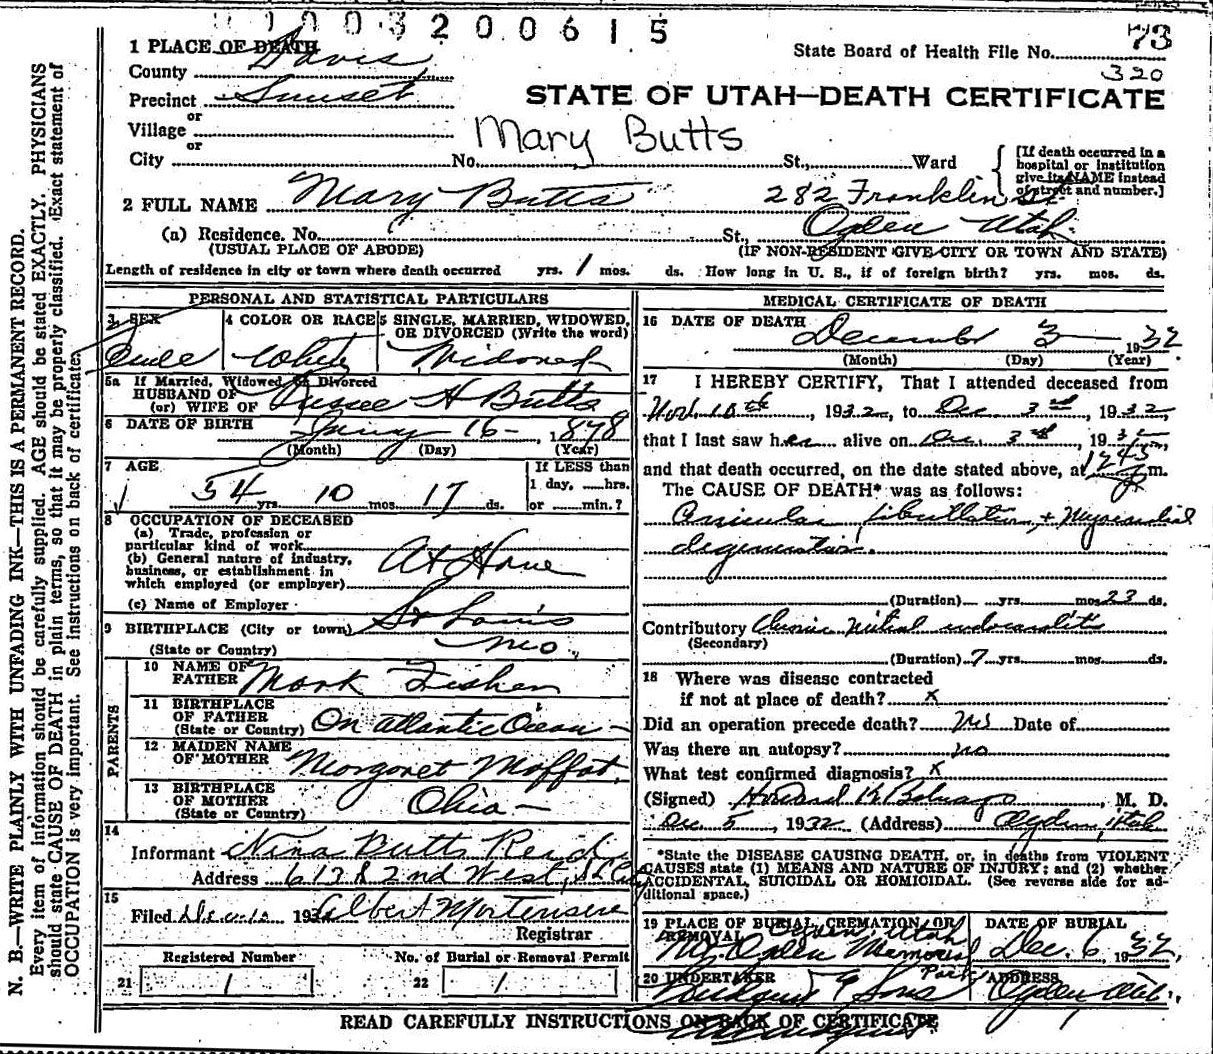 0100320 0615
73
1 PLACE OF DEATH
State Board of Health File No.
County Davis
320
Precinct Sunset
STATE OF UTAH—DEATH CERTIFICATE
or
Village
Mary Butts
or
City No. St., Ward
[If death occurred in a hospital or institution give its NAME instead of street and number.]
2 FULL NAME Mary Butts
282 Franklin St.
(a) Residence. No. St., Ogden Utah.
(USUAL PLACE OF ABODE) (IF NON-RESIDENT GIVE CITY OR TOWN AND STATE)
Length of residence in city or town where death occurred yrs. 1 mos. ds. How long in U. S., if of foreign birth? yrs. mos. ds.
PERSONAL AND STATISTICAL PARTICULARS
3 SEX
4 COLOR OR RACE White
5 SINGLE, MARRIED, WIDOWED, OR DIVORCED (Write the word) Widowed
5a If Married, Widowed or Divorced
HUSBAND OF
(or) WIFE OF H Butts
6 DATE OF BIRTH 16 - 1878
(Month) (Day) (Year)
7 AGE
54 yrs. 10 mos. 17 ds.
If LESS than
1 day, hrs.
or min.?
8 OCCUPATION OF DECEASED
(a) Trade, profession or
particular kind of work
At Home
(b) General nature of industry,
business, or establishment in
which employed (or employer)
(c) Name of Employer
9 BIRTHPLACE (City or town) St Louis
(State or Country) Mo.
PARENTS
10 NAME OF FATHER Mark Fisher
11 BIRTHPLACE OF FATHER (State or Country) On Atlantic Ocean -
12 MAIDEN NAME OF MOTHER Margaret Moffat.
13 BIRTHPLACE OF MOTHER (State or Country) Ohio -
14
Informant Nina Butts Read
Address 613 S 2nd West, S L City
15
Filed Dec 1932 Albert Mortensen
Registrar
Registered Number
No. of Burial or Removal Permit
21 1
22 1
MEDICAL CERTIFICATE OF DEATH
16 DATE OF DEATH
December 3 1932
(Month) (Day) (Year)
17 I HEREBY CERTIFY, That I attended deceased from
Nov. 10th, 1932, to Dec. 3rd, 1932,
that I last saw her alive on Dec. 3rd, 1932,
and that death occurred, on the date stated above, at 1245 P m.
The CAUSE OF DEATH* was as follows:
Auricular fibrillation, + Myocardial
degeneration.
(Duration) yrs. mos. 23 ds.
Contributory Chronic mitral endocarditis
(Secondary)
(Duration) 7 yrs. mos. ds.
18 Where was disease contracted
if not at place of death? x
Did an operation precede death? Date of
Was there an autopsy? no
What test confirmed diagnosis? x
(Signed) Howard K , M. D.
Dec 5, 1932 (Address) Ogden, Utah
*State the DISEASE CAUSING DEATH, or, in deaths from VIOLENT
CAUSES state (1) MEANS AND NATURE OF INJURY; and (2) whether
ACCIDENTAL, SUICIDAL OR HOMICIDAL. (See reverse side for additional space.)
19 PLACE OF BURIAL, CREMATION, OR REMOVAL
Ogden Utah
Mt. Ogden Memorial Park
DATE OF BURIAL
Dec. 6, 1932,
20 UNDERTAKER
& Sons
ADDRESS
Ogden Utah.,
READ CAREFULLY INSTRUCTIONS ON BACK OF CERTIFICATE
N. B.—WRITE PLAINLY WITH UNFADING INK—THIS IS A PERMANENT RECORD.
Every item of information should be carefully supplied. AGE should be stated EXACTLY. PHYSICIANS
should state CAUSE OF DEATH in plain terms, so that it may be properly classified. Exact statement of
OCCUPATION is very important. See instructions on back of certificate.